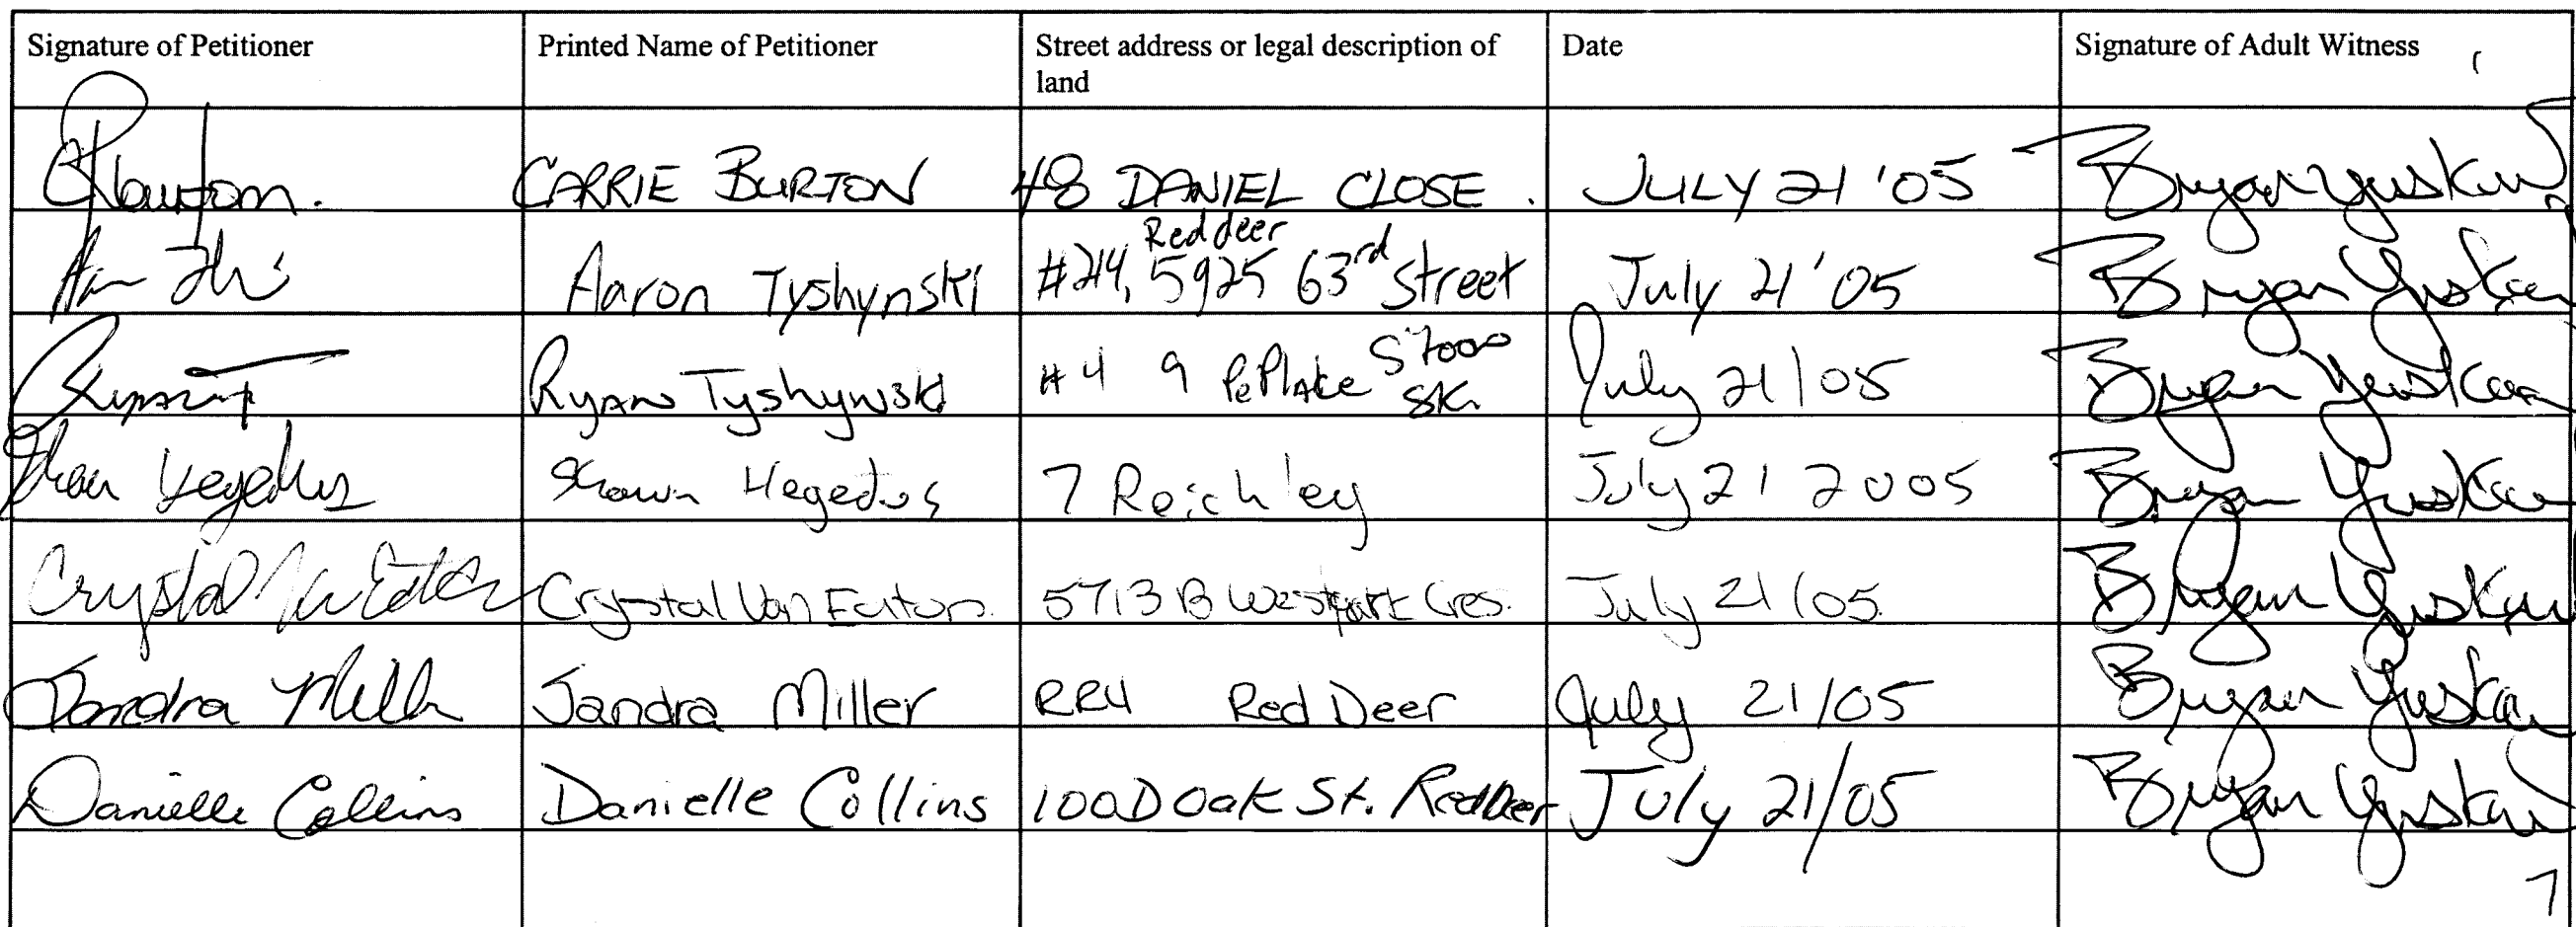 Signature of Petitioner Printed Name of Petitioner Street address or legal description of land Date Signature of Adult Witness
CARRIE BURTON 48 DANIEL CLOSE. JULY 21 '05 Bryan Yuskow
Aaron Tyshynski #214, 5925 63rd Street Red deer July 21 '05 Bryan
Ryan Tyshynski #4 9 Place SK. July 21/05 Bryan
Shawn Hegedus 7 Reichley July 21 2005 Bryan
Crystal Crystal Van 5713 B Westpark Cres. July 21/05 Bryan
Jandra Miller Jandra Miller RR4 Red Deer July 21/05 Bryan
Danielle Collins Danielle Collins 100D Oak St. Red Deer July 21/05 Bryan
7